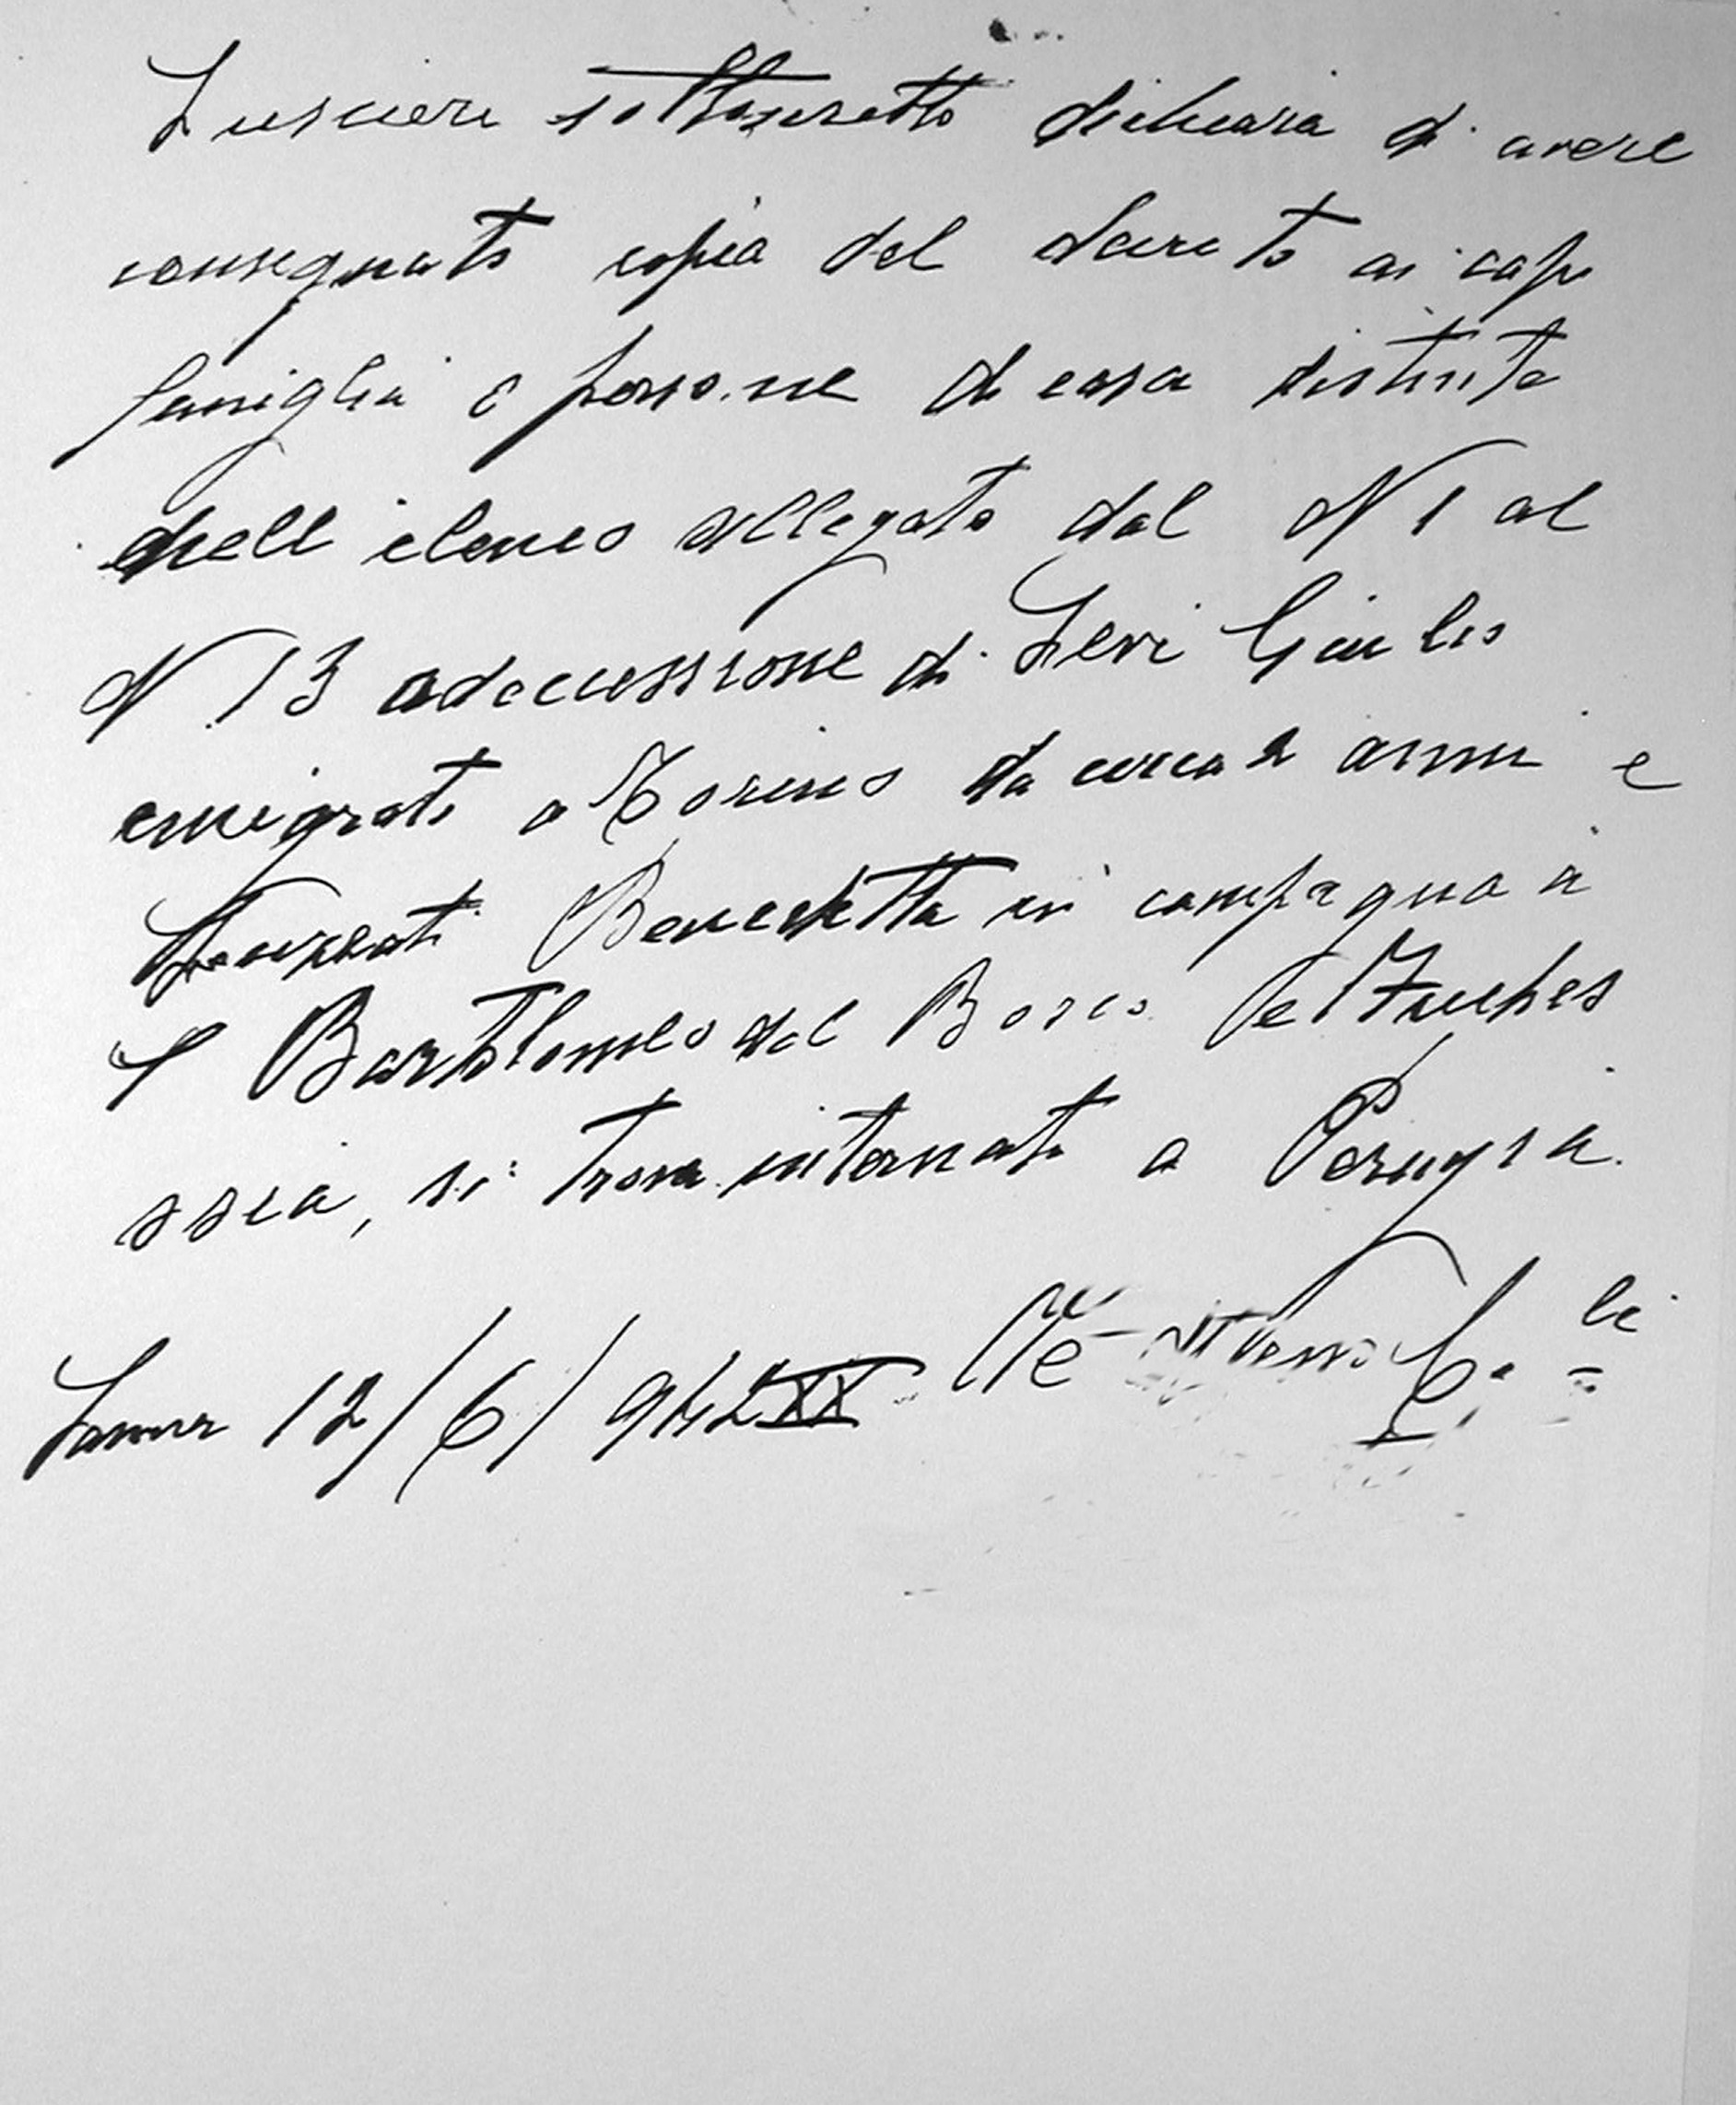 L'usciere sottoscritto dichiara di avere
consegnato copia del decreto ai capi
famiglia o persone di casa distinte
dell elenco allegato dal N 1 al
N 13 adeccessione di Levi Giulio
emigrato a Torino da circa 2 anni e
Benedetta in campagna a
S Bartolomeo del Bosco
ssia, si trova internato a Perugia.
12/6/942 XX